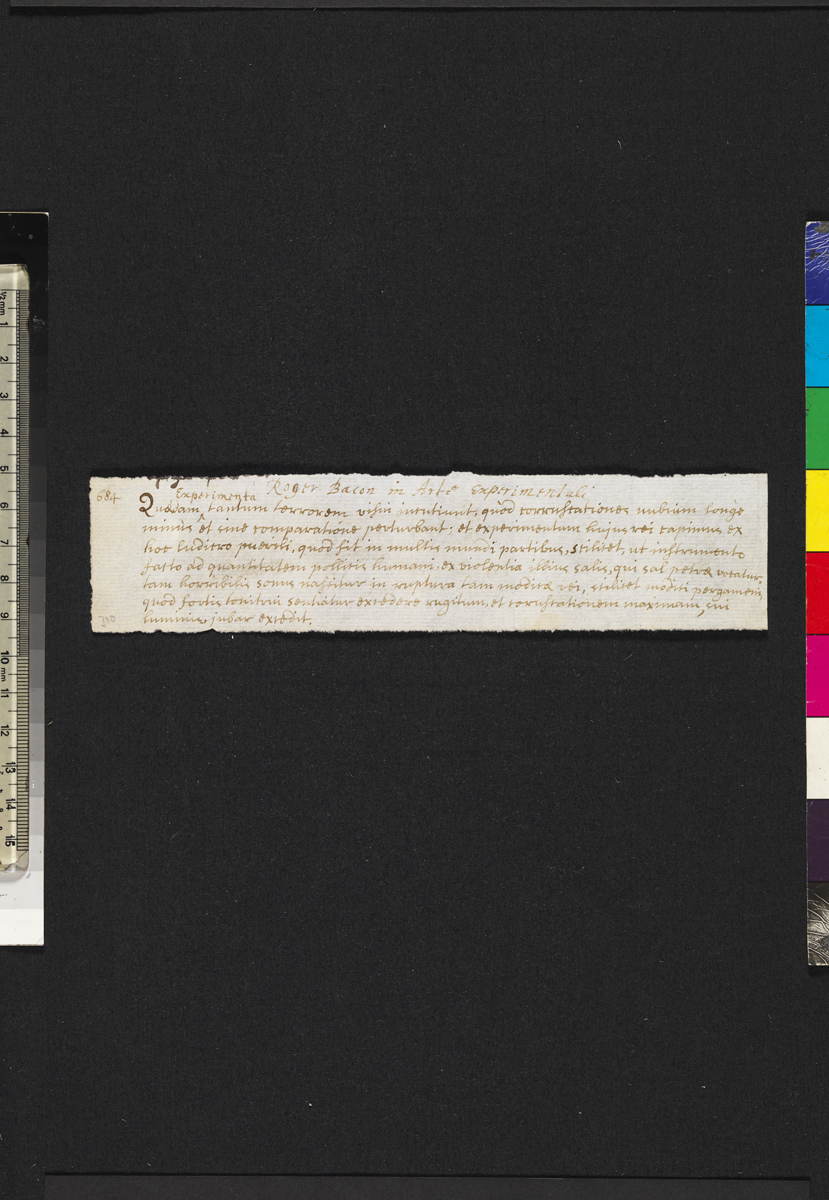 684
Roger Bacon in Arte Experimentali
Experimenta
Quædam ^ tantum terrorem visui incutiunt, quòd corruscationes nubium longè
minùs et sine comparatione perturbant; et experimentum hujus rei capimus ex
hoc ludicro puerili, quod fit in multis mundi partibus, scilicet, ut instrumento
facto ad quantitatem pollicis humani, ex violentia illius salis, qui sal petræ vocatur,
tam horribilis sonus nascitur in ruptura tam modicæ rei, scilicet modici pergameni,
quod fortis tonitrui sentiatur excedere rugitum, et coruscationem maximam, sui
luminis jubar excedit.
½mm 1 2 3 4 5 6 7 8 9 10 mm 11 12 13 14 15